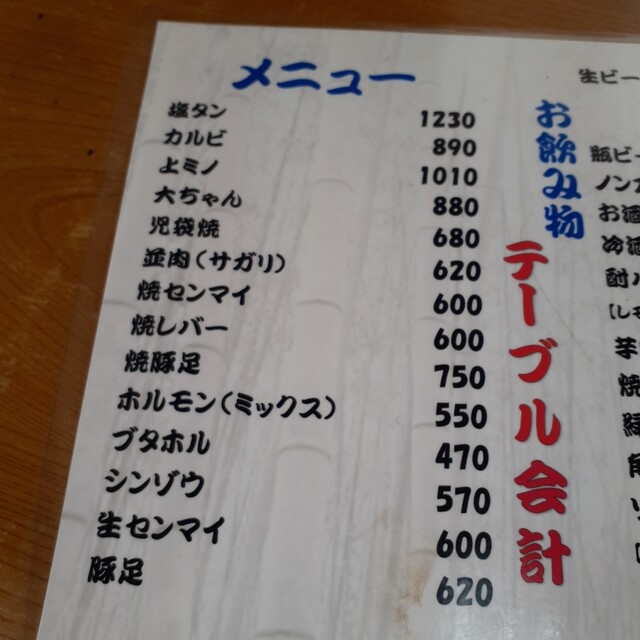 メニュー
塩タン 1230
カルビ 890
上ミノ 1010
大ちゃん 880
児袋焼 680
並肉(サガリ) 620
焼センマイ 600
焼レバー 600
焼豚足 750
ホルモン(ミックス) 550
ブタホル 470
シンゾウ 570
生センマイ 600
豚足 620
お飲み物
テーブル会計
生ビー
瓶ビー
ノンア
お酒
冷酒
酎ハ
芋
焼